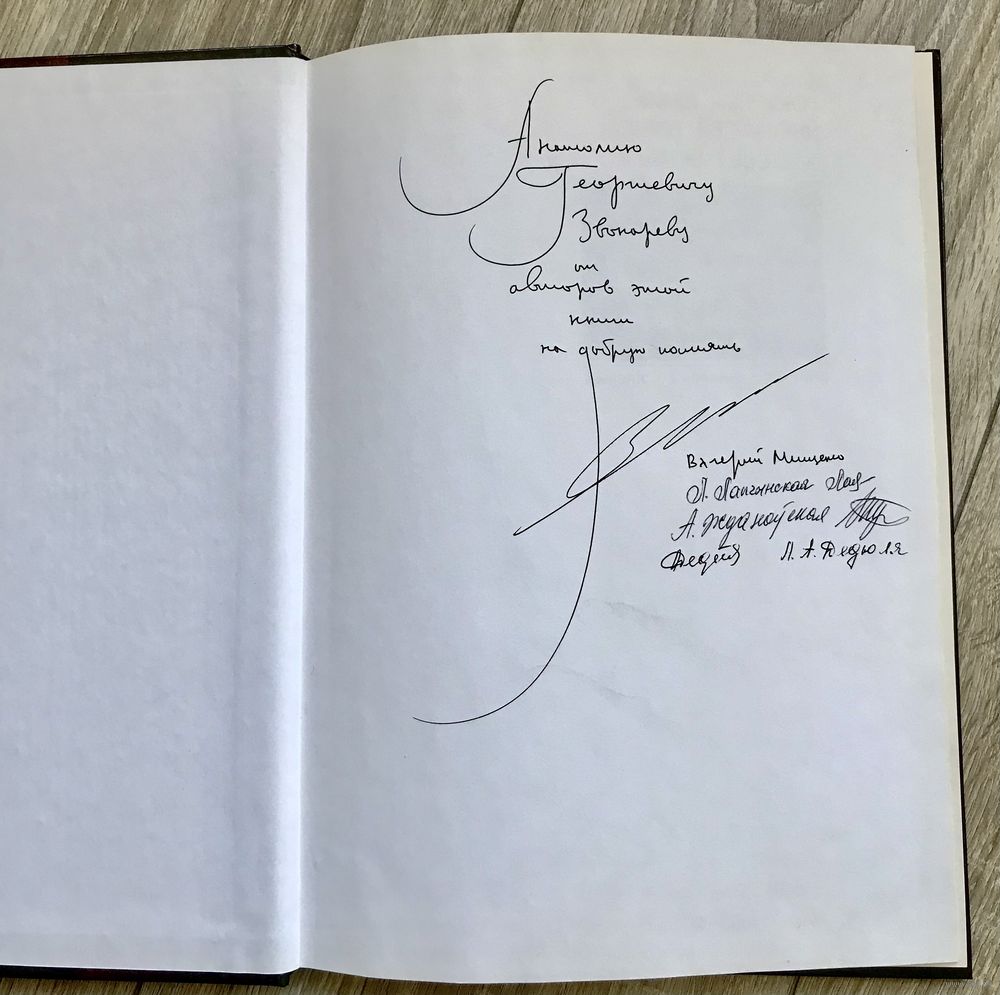 Анатолию
Георгиевичу
Звонареву
от
авторов этой
книги
на добрую память
Валерий Мищенко
Л.
А. Ждановская
Л. А. Дедюля